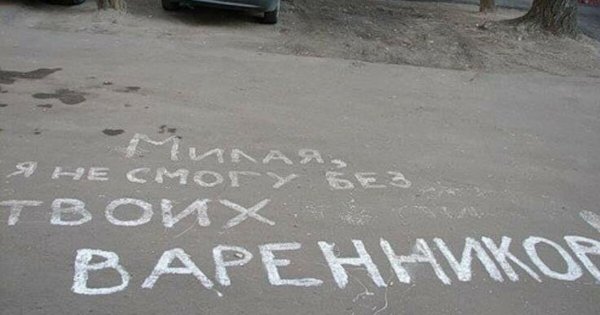 Милая,
я не смогу без
твоих
ВАРЕННИКОВ!